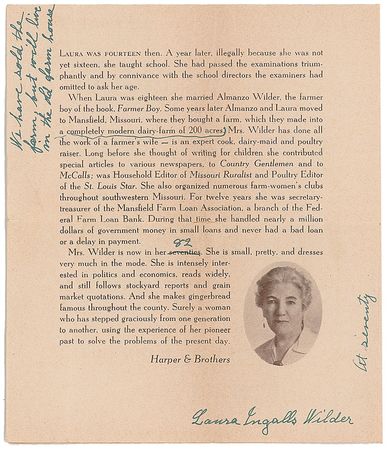 We have sold the
farm, but will live
in the old farm house
LAURA WAS FOURTEEN then. A year later, illegally because she was not
yet sixteen, she taught school. She had passed the examinations trium-
phantly and by connivance with the school directors the examiners had
omitted to ask her age.
When Laura was eighteen she married Almanzo Wilder, the farmer
boy of the book, Farmer Boy. Some years later Almanzo and Laura moved
to Mansfield, Missouri, where they bought a farm, which they made into
a completely modern dairy-farm of 200 acres. Mrs. Wilder has done all
the work of a farmer's wife — is an expert cook, dairy-maid and poultry
raiser. Long before she thought of writing for children she contributed
special articles to various newspapers, to Country Gentleman and to
McCalls; was Household Editor of Missouri Ruralist and Poultry Editor
of the St. Louis Star. She also organized numerous farm-women's clubs
throughout southwestern Missouri. For twelve years she was secretary-
treasurer of the Mansfield Farm Loan Association, a branch of the Fed-
eral Farm Loan Bank. During that time she handled nearly a million
dollars of government money in small loans and never had a bad loan
or a delay in payment.
82
Mrs. Wilder is now in her seventies. She is small, pretty, and dresses
very much in the mode. She is intensely inter-
ested in politics and economics, reads widely,
and still follows stockyard reports and grain
market quotations. And she makes gingerbread
famous throughout the county. Surely a woman
who has stepped graciously from one generation
to another, using the experience of her pioneer
past to solve the problems of the present day.
Harper & Brothers
At seventy
Laura Ingalls Wilder